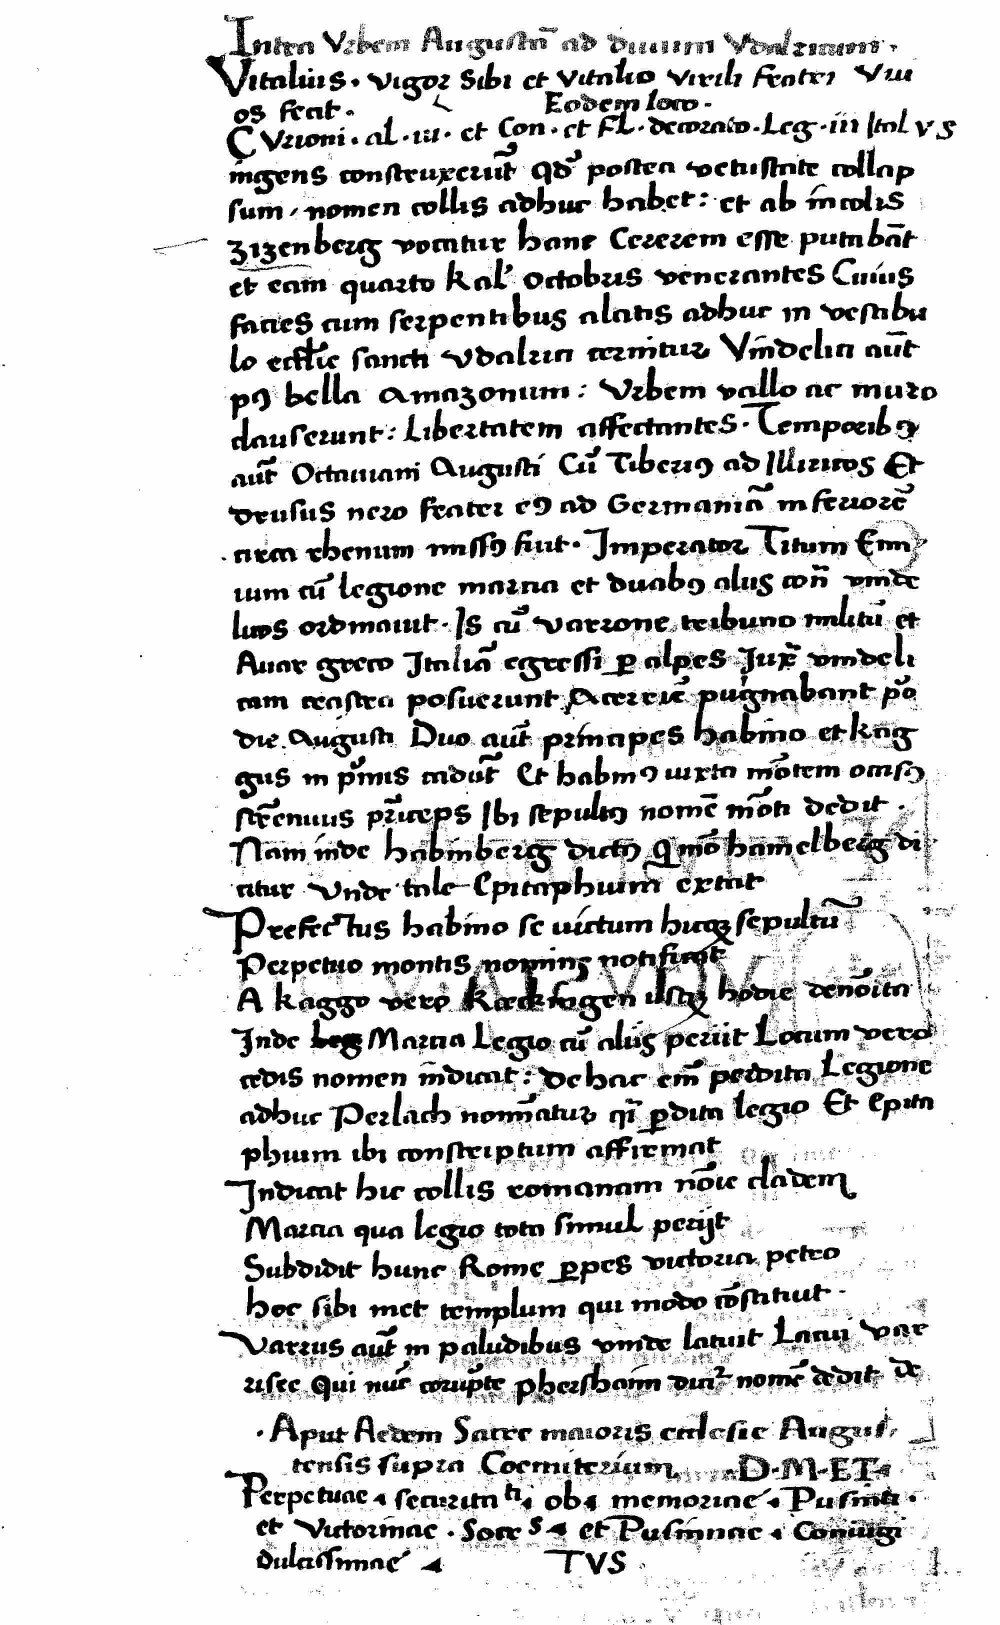 Intra Vrbem Augustā ad diuum Vdalricum.
Vitalius. vigor sibi et vitalio virili frater Viu
os fecit. Eodem loco.
CVrioni. al. iii. et Con. et FL. decorato. Leg. iii Ital vs
ingens construxerūt qd' postea vetustate collap
sum, nomen collis adhuc habet: et ab īcolis
zizenberg vocatur hanc Cererem esse putabāt
et eam quarto kal' Octobris venerantes Cuius
facies cum serpentibus alatis adhuc in vestibu
lo ecclīe sancti vdalrici cernitur Vindelici aūt
pꝯ bella Amazonum: Vrbem vallo ac muro
clauserunt: Libertatem affectantes. Temporibꝯ
aūt Octauiani Augusti Cū Tiberiꝯ ad Illiricos Et
drusus nero frater eꝯ ad Germaniā inferiorē
circa rhenum missꝯ fuit. Imperator Titum Enn
ium cū legione marcia et duabꝯ alijs con̄ vinde
licos ordinauit. Is cū varrone tribuno militū et
Auar greco Italiā egressi ꝑ alpes Juxͣ vindeli
cam castra posuerunt Acerrie pugnabant p'o
die. Augusti Duo aūt principes habino et kag
gus in p'mis cadūt Et habinꝯ iuxta mōtem occisꝯ
strēnuus prīceps Ibi sepultꝯ nomē mōti dedit.
Nam inde habinberg dictꝯ q mō hamelberg di
citur Vnde tale Epitaphium extat
Prefectus habino se uictum hicqꝫ sepultū
Perpetuo montis nomine notificat
A kaggo vero Kaekingen usqꝫ hodie denōita
Inde leg Marcia Legio cū alijs periit Locum vero
cedis nomen īndicat: de hac em̄ perdita Legione
adhuc Perlach nomīatur qī ꝑdita legio Et Epita
phium ibi conscriptum affirmat
Indicat hic collis romanam nōie cladem
Marcia qua legio tota simul perijt
Subdidit hunc Rome ꝑpes victoria petro
hoc sibi met templum qui modo cōstituit.
Varrus aūt in paludibus vnde latuit Lacui var
risee Qui nūc corrupte phershaim dicit' nomē dedit de
. Aput Aedem Sacre maioris ecclesie Augus
tensis supra Coemiterium D.M.ET
Perpetuae securita ti ob memoriae Pusinni.
et Victorinae. Socr s et Pusinnae Coniugi
dulcissimae TVS